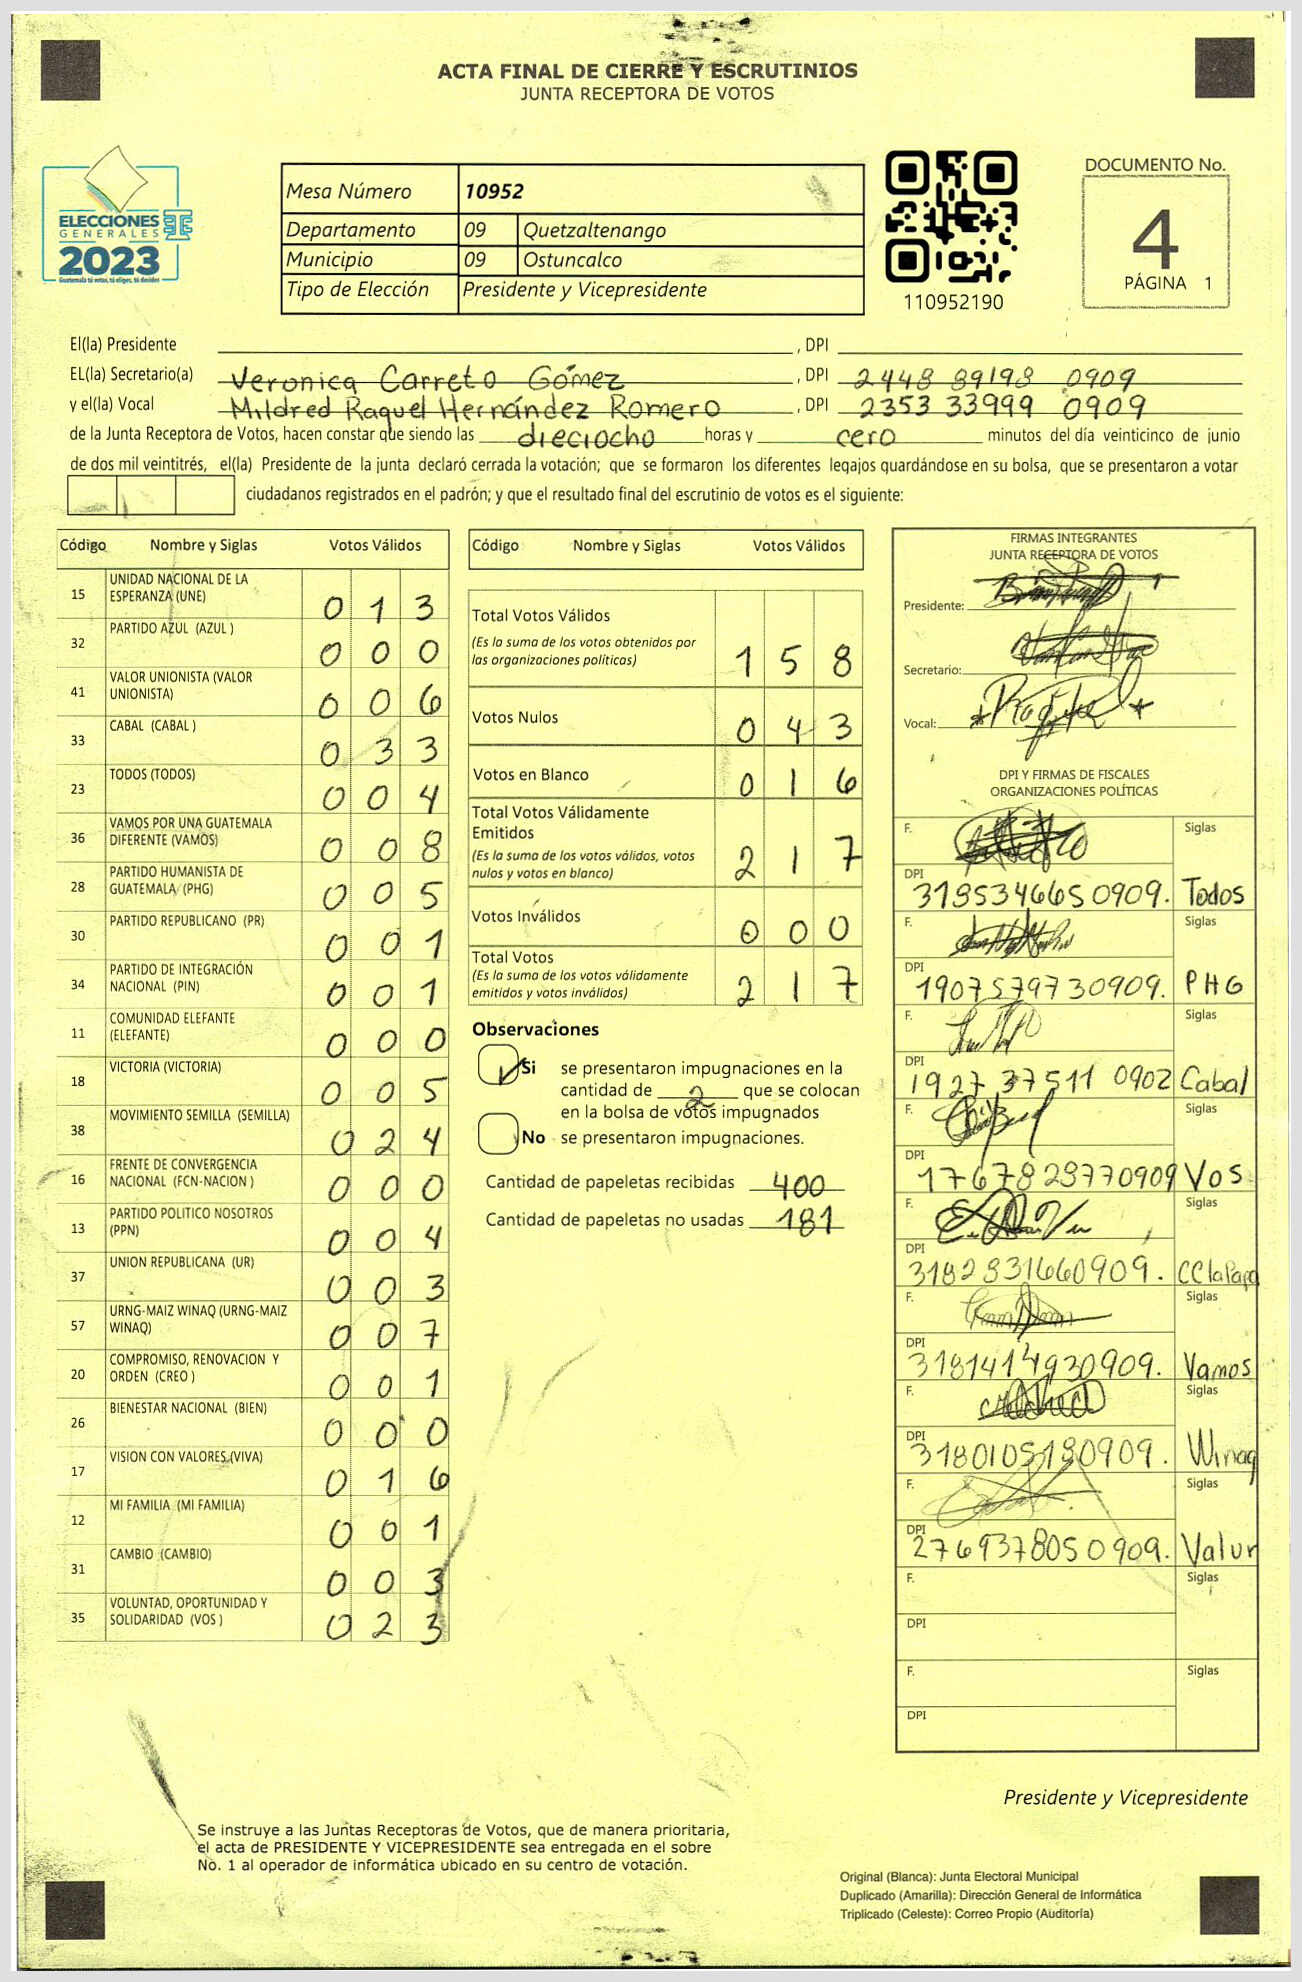 ACTA FINAL DE CIERRE Y ESCRUTINIOS
JUNTA RECEPTORA DE VOTOS
ELECCIONES
GENERALES
2023
Guatemala tú votas, tú eliges, tú decides
Mesa Número 10952
Departamento 09 Quetzaltenango
Municipio 09 Ostuncalco
Tipo de Elección Presidente y Vicepresidente
110952190
DOCUMENTO No.
4
PÁGINA 1
El(la) Presidente , DPI
EL(la) Secretario(a) Veronica Carreto Gómez , DPI 2448 89198 0909
y el(la) Vocal Mildred Raquel Hernández Romero , DPI 2353 33999 0909
de la Junta Receptora de Votos, hacen constar que siendo las dieciocho horas y cero minutos del día veinticinco de junio
de dos mil veintitrés, el(la) Presidente de la junta declaró cerrada la votación; que se formaron los diferentes legajos guardándose en su bolsa, que se presentaron a votar
ciudadanos registrados en el padrón; y que el resultado final del escrutinio de votos es el siguiente:
Código Nombre y Siglas Votos Válidos
15 UNIDAD NACIONAL DE LA ESPERANZA (UNE) 0 1 3
32 PARTIDO AZUL (AZUL ) 0 0 0
41 VALOR UNIONISTA (VALOR UNIONISTA) 0 0 6
33 CABAL (CABAL ) 0 3 3
23 TODOS (TODOS) 0 0 4
36 VAMOS POR UNA GUATEMALA DIFERENTE (VAMOS) 0 0 8
28 PARTIDO HUMANISTA DE GUATEMALA (PHG) 0 0 5
30 PARTIDO REPUBLICANO (PR) 0 0 1
34 PARTIDO DE INTEGRACIÓN NACIONAL (PIN) 0 0 1
11 COMUNIDAD ELEFANTE (ELEFANTE) 0 0 0
18 VICTORIA (VICTORIA) 0 0 5
38 MOVIMIENTO SEMILLA (SEMILLA) 0 2 4
16 FRENTE DE CONVERGENCIA NACIONAL (FCN-NACION ) 0 0 0
13 PARTIDO POLITICO NOSOTROS (PPN) 0 0 4
37 UNION REPUBLICANA (UR) 0 0 3
57 URNG-MAIZ WINAQ (URNG-MAIZ WINAQ) 0 0 7
20 COMPROMISO, RENOVACION Y ORDEN (CREO ) 0 0 1
26 BIENESTAR NACIONAL (BIEN) 0 0 0
17 VISION CON VALORES (VIVA) 0 1 6
12 MI FAMILIA (MI FAMILIA) 0 0 1
31 CAMBIO (CAMBIO) 0 0 3
35 VOLUNTAD, OPORTUNIDAD Y SOLIDARIDAD (VOS ) 0 2 3
Código Nombre y Siglas Votos Válidos
Total Votos Válidos
(Es la suma de los votos obtenidos por
las organizaciones políticas) 1 5 8
Votos Nulos 0 4 3
Votos en Blanco 0 1 6
Total Votos Válidamente
Emitidos
(Es la suma de los votos válidos, votos
nulos y votos en blanco) 2 1 7
Votos Inválidos 0 0 0
Total Votos
(Es la suma de los votos válidamente
emitidos y votos inválidos) 2 1 7
Observaciones
Si se presentaron impugnaciones en la
cantidad de 2 que se colocan
en la bolsa de votos impugnados
No se presentaron impugnaciones.
Cantidad de papeletas recibidas 400
Cantidad de papeletas no usadas 181
FIRMAS INTEGRANTES
JUNTA RECEPTORA DE VOTOS
Presidente:
Secretario:
Vocal:
DPI Y FIRMAS DE FISCALES
ORGANIZACIONES POLÍTICAS
F. Siglas
DPI 318534665 0909. Todos
F. Siglas
DPI 1907579730909. PHG
F. Siglas
DPI 1927 37511 0902 Cabal
F. Siglas
DPI 1767823770909 Vos
F. Siglas
DPI 3182831660909.
F. Siglas
DPI 3181414930909. Vamos
F. Siglas
DPI 3180105180909. Winaq
F. Siglas
DPI 2769378050909. Valur
F. Siglas
DPI
F. Siglas
DPI
Presidente y Vicepresidente
Se instruye a las Juntas Receptoras de Votos, que de manera prioritaria,
el acta de PRESIDENTE Y VICEPRESIDENTE sea entregada en el sobre
No. 1 al operador de informática ubicado en su centro de votación.
Original (Blanca): Junta Electoral Municipal
Duplicado (Amarilla): Dirección General de Informática
Triplicado (Celeste): Correo Propio (Auditoría)